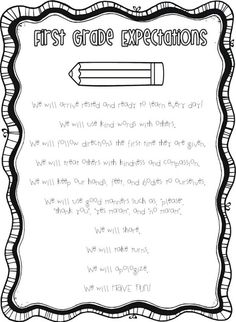 First Grade Expectations
We will arrive rested and ready to learn every day!
We will use kind words with others.
We will follow directions the first time they are given.
We will treat others with kindness and compassion.
We will keep our hands, feet, and bodies to ourselves.
We will use good manners such as, "please",
"thank you", "yes ma'am", and "no ma'am".
We will share.
We will take turns.
We will apologize.
We will HAVE FUN!